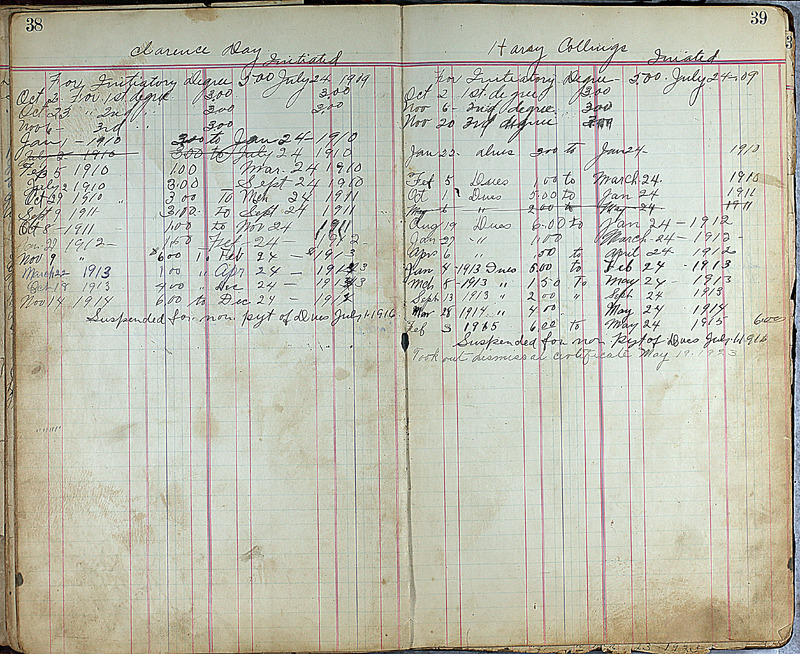 38
Clarence Day
Initiated
For Initiatory Degree 5.00 July 24 1909
Oct 2 For 1st degree 3.00 3.00
Oct 23 " 2nd " 3.00 3.00
Nov 6 - 3rd " 3.00
Jan 1 - 1910 3.00 to Jan 24 - 1910
July 2 - 1910 3.00 to July 24 1910
Feb 5 1910 1.00 Mar. 24 1910
July 2 1910 3.00 - Sept 24 1910
Oct 29 1910 " 3.00 to Mch 24 1911
Sept 9 1911 3.00 to Sept 24 1911
Oct 8 - 1911 1.00 to Nov 24 1911
Jan. 27 1912 - 1.00 Feb 24 1912
Nov 9 " 6.00 " Feb 24 - 1913
March 22 1913 1.00 " Apr 24 - 1913
Oct 18 1913 4.00 " Dec 24 - 1913
Nov 14 1914 6.00 to Dec 24 - 1914
Suspended for non pyt of Dues July 1-1916
39
Harry Collings
Iniated
For Initiatory Degree - 5.00. July 24-09
Oct 2 1st degree 3.00
Nov 6 - 2nd degree 3.00
Nov 20 3rd degree 3.00
Jan 22 - dues 3.00 to Jan 24 - 1910
Feb 5 Dues 1.00 to March 24. 1910
Oct 1 Dues 5.00 to Jan 24 1911
May 6 " 2.00 to May 24 1911
Aug 19 Dues 6.00 to Jan 24 - 1912
Jan 27 - " 1.00 March 24 - 1912 -
Apr 6 " .50 to April 24 - 1912
Jan 4 - 1913 Dues 5.00 to Feb 24 - 1913
Mch 8 - 1913 " 1.50 to May 24 - 1913
Sept 13 1913 " 2.00 " Sept 24 1913
Mar 28 1914 " 4.00 " May 24 1914
Feb 3 1915 6.00 to May 24 1915 6.00
Suspended for non Pyt of Dues July 1-1916
Took out dismissal certificate May 19-1923